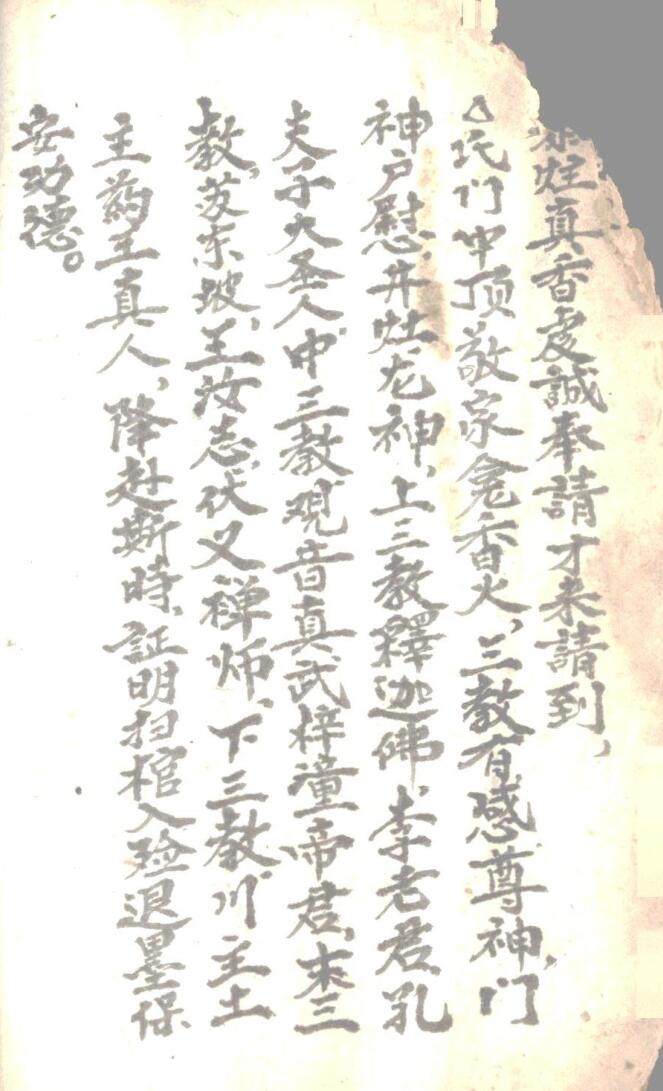 炷真香虔誠奉請才来請到，
△氏门中顶敬家龛香火，三教有感尊神，门
神户慰，井灶龙神，上三教釋迦佛，李老君，孔
夫子大圣人，中三教，观音真武梓潼帝君，末三
教，苏东坡，王汝志，伏义禅师，下三教，川主土
主药王真人，降赴斯時，証明扫棺入殓退墨保
安功德。